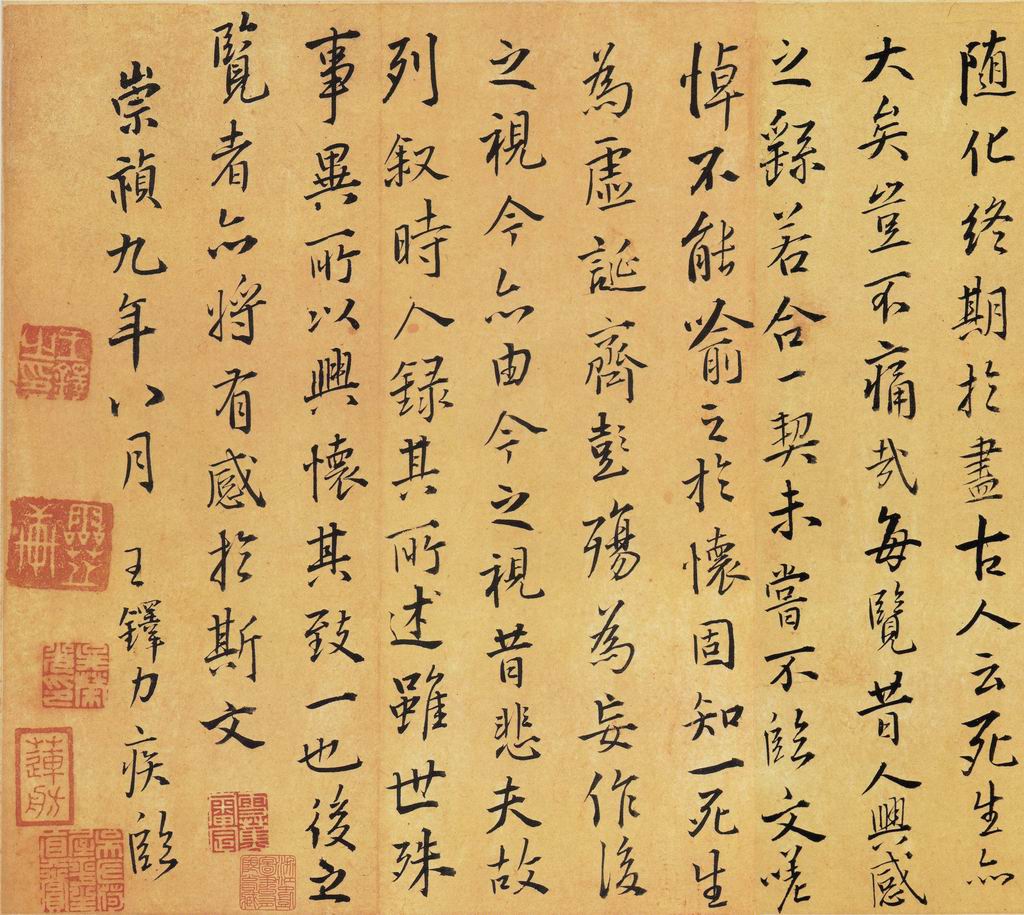 随化终期於盡古人云死生亦
大矣豈不痛哉每覽昔人興感
之繇若合一契未嘗不臨文嗟
悼不能喻之於懷固知一死生
為虛誕齊彭殤為妄作後
之視今亦由今之視昔悲夫故
列敘時人錄其所述雖世殊
事異所以興懷其致一也後之
覽者亦將有感於斯文
崇禎九年八月 王鐸力疾臨
蓮舫